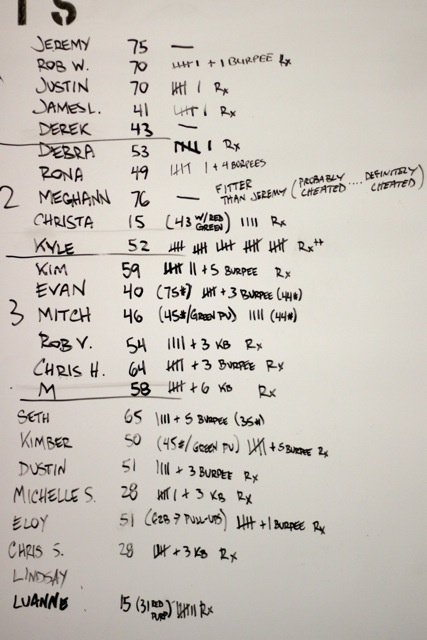 TS
JEREMY 75 —
ROB W. 70 卌 I + 1 BURPEE Rx
JUSTIN 70 卌 I Rx
JAMES L. 41 卌 I Rx
DEREK 43 —
DEBRA 53 卌 I Rx
RONA 49 卌 I + 4 BURPEES
2 MEGHANN 76 — FITTER THAN JEREMY (PROBABLY CHEATED .... DEFINITELY CHEATED)
CHRISTA 15 (43 W/RED GREEN) IIII Rx
KYLE 52 卌 卌 卌 卌 卌 Rx++
KIM 59 卌 II + 5 BURPEE Rx
EVAN 40 (75#) 卌 + 3 BURPEE (44#)
3 MITCH 46 (45#/GREEN PU) IIII (44#)
ROB V. 54 IIII + 3 KB Rx
CHRIS H. 64 卌 + 3 BURPEE Rx
M 58 卌 + 6 KB Rx
SETH 65 IIII + 5 BURPEE (35#)
KIMBER 50 (45#/GREEN PU) 卌 + 5 BURPEE Rx
DUSTIN 51 IIII + 3 BURPEE Rx
MICHELLE S. 28 卌 I + 3 KB Rx
ELOY 51 PULL-UPS) 卌 + 1 BURPEE Rx
CHRIS S. 28 卌 + 3 KB Rx
LINDSAY
LUANNE 15 (31 RED PURP) 卌 II Rx